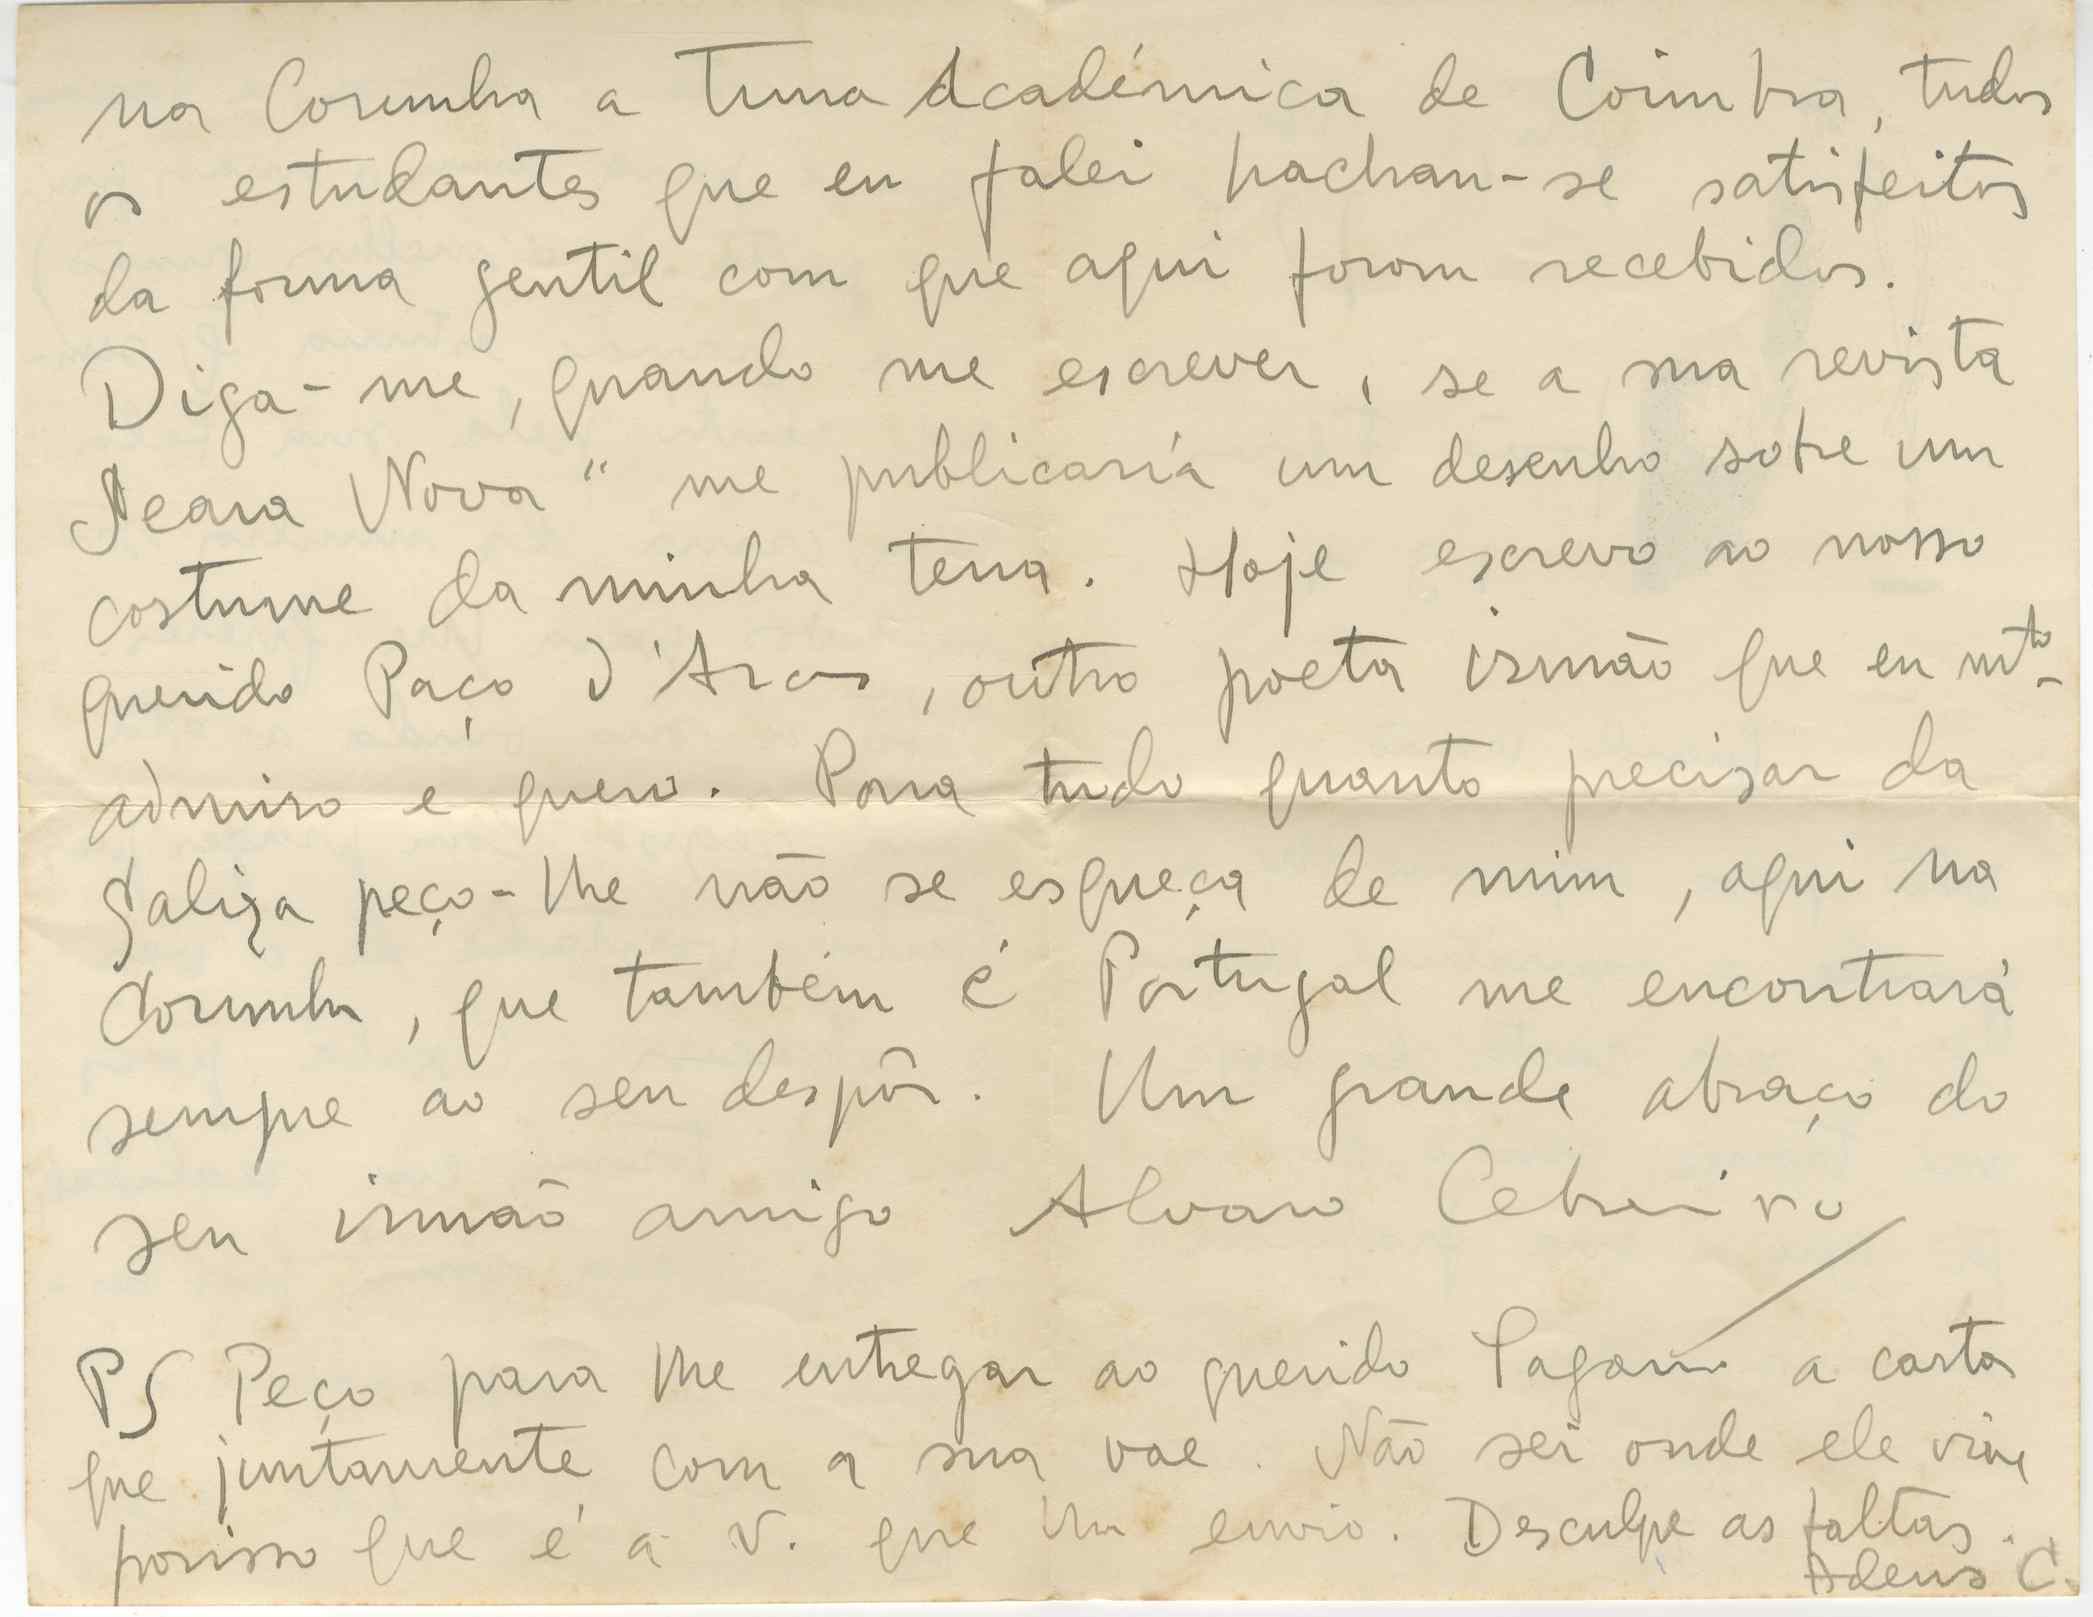 na Corunha a Tuna Académica de Coimbra, tudos
os estudantes que eu falei hachan-se satisfeitos
da forma gentil com que aqui forom recebidos.
Diga-me, quando me escrever, se a sua revista
Seara Nova" me publicaría um desenho sobre um
costume da minha terra. Hoje escrevo ao nosso
querido Paço d'Arcos, outro poeta irmão que eu mto-
admiro e quero. Para tudo quanto precisar da
Galiza peço-lhe não se esqueça de mim, aqui na
Corunha, que também é Portugal me encontrará
sempre ao seu despôr. Um grande abraço do
seu irmão amigo Alvaro Cebreiro
PS Peço para lhe entregar ao querido a carta
que juntamente com a sua vae. Não sei onde ele vive
porisso que é a V. que lha envio. Desculpe as faltas.
Adeus C.